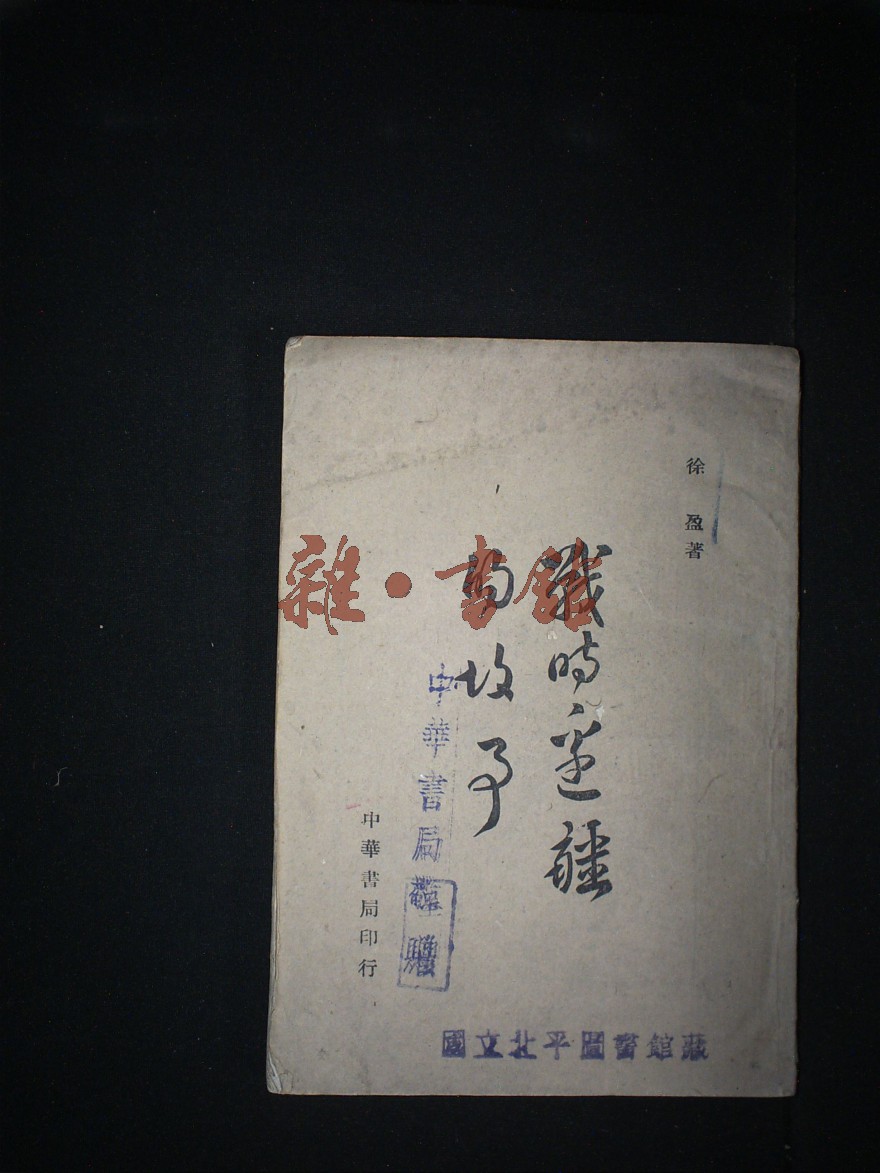 徐盈著
戰時邊疆
的故事
中華書局印行
中華書局
國立北平圖書館藏
雜·書館